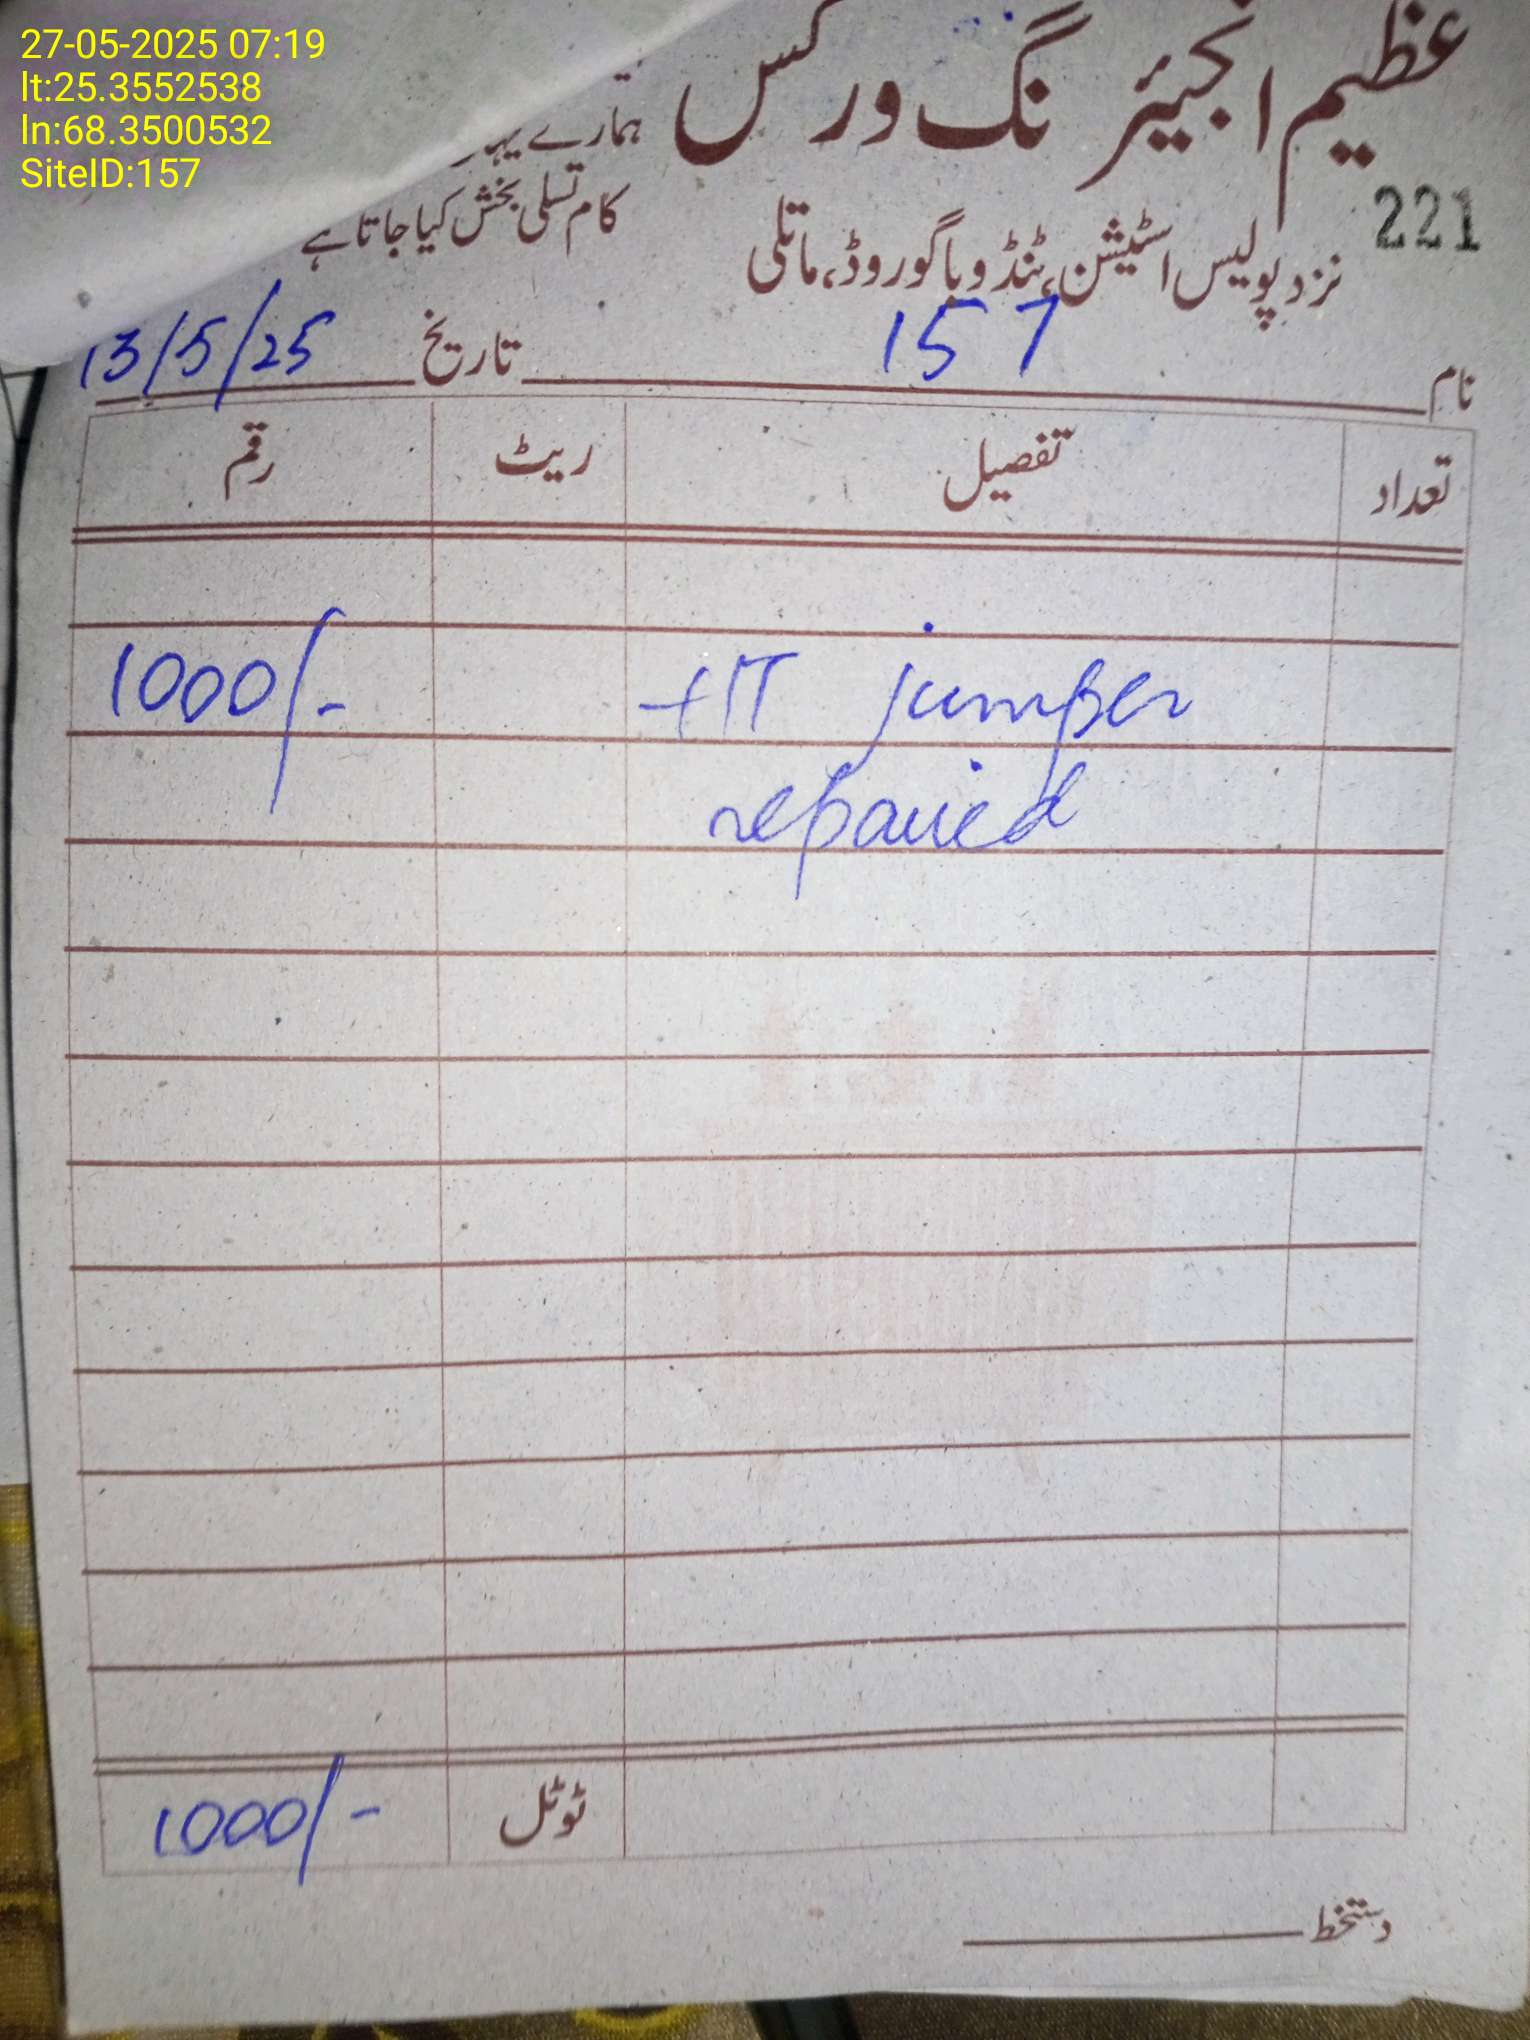 27-05-2025 07:19
lt:25.3552538
ln:68.3500532
SiteID:157
عظیم انجینئرنگ ورکس
ہمارے یہاں
کام تسلی بخش کیا جاتا ہے
221
نزد پولیس اسٹیشن، ٹنڈو باگو روڈ، ماتلی
نام 157 تاریخ 13/5/25
تعداد تفصیل ریٹ رقم
HT jumper 1000/-
repaired
ٹوٹل 1000/-
دستخط